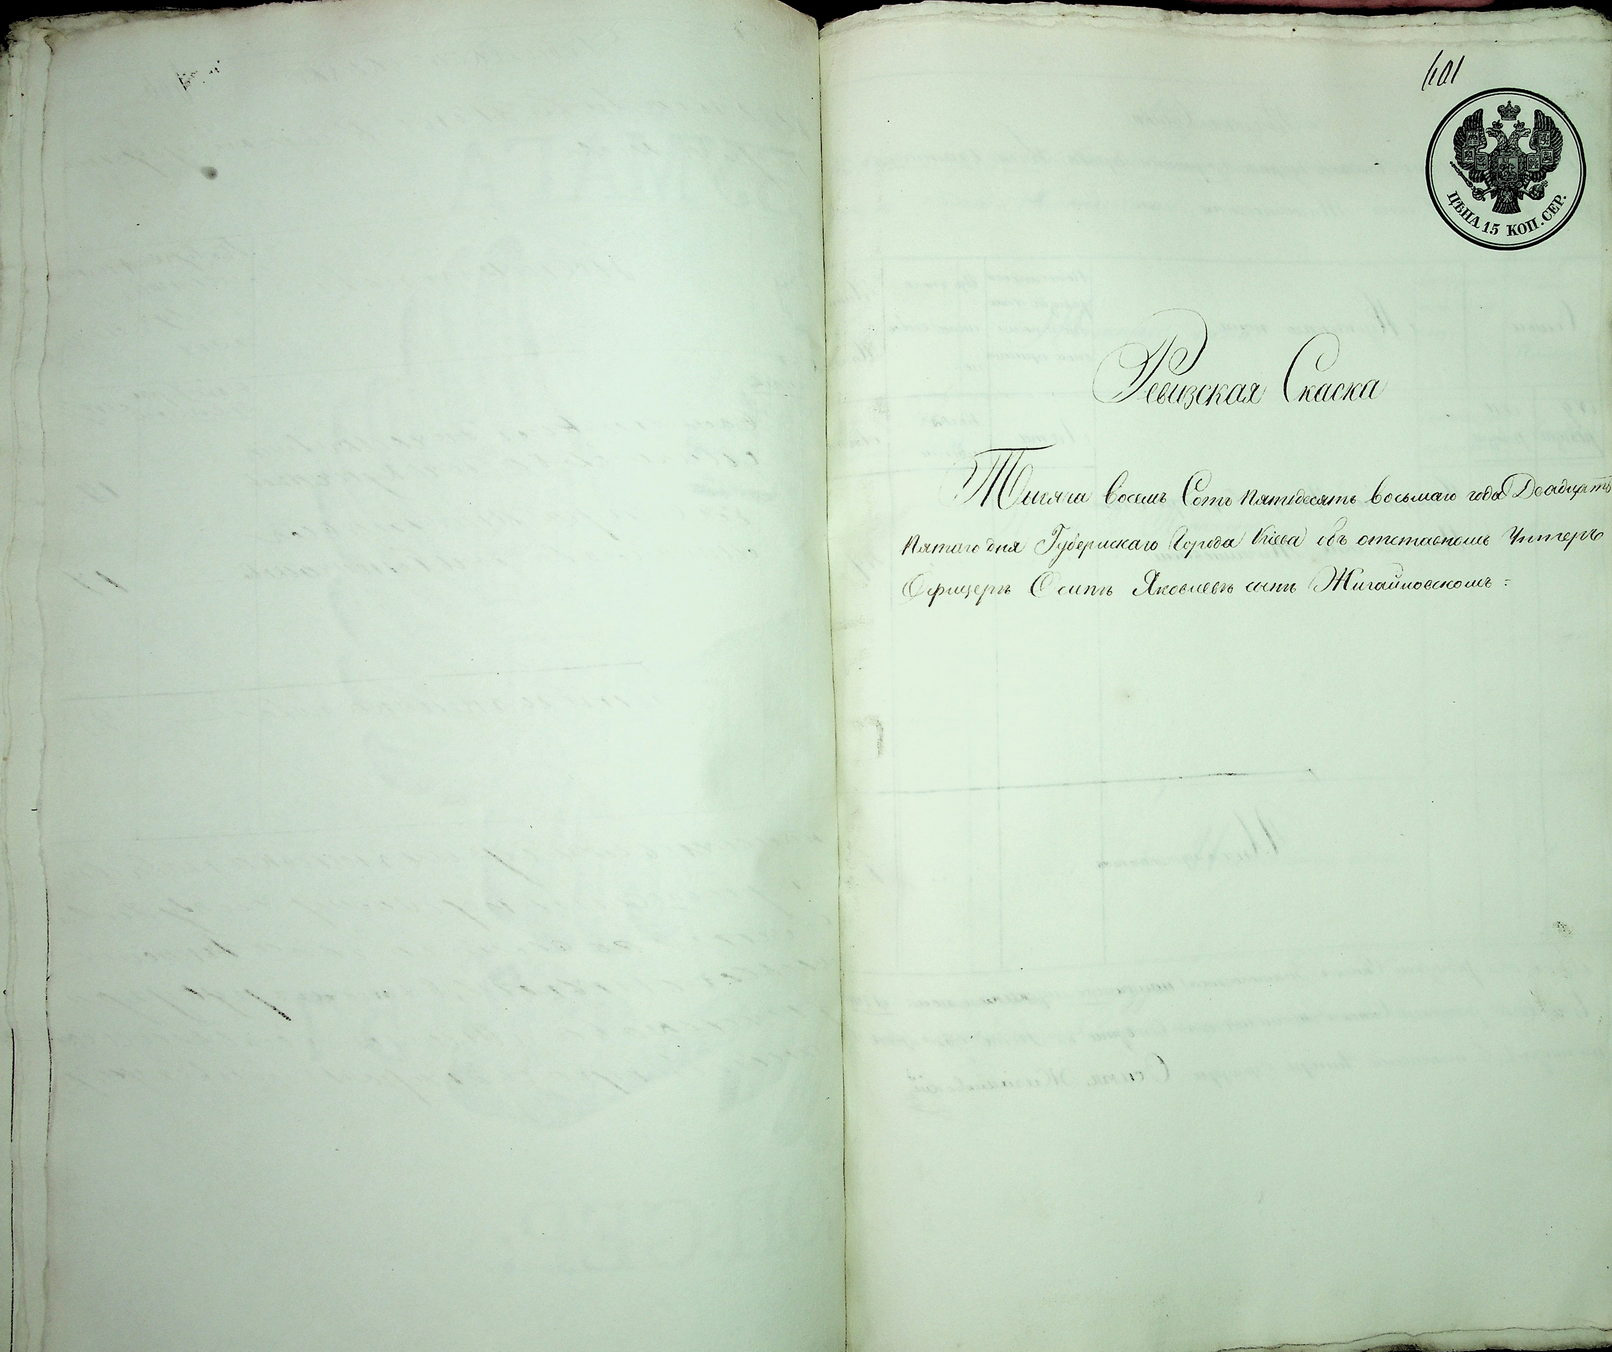 401
ЦѢНА 15 КОП. СЕР.
Ревизская Скаска
Тысяча восемь Сотъ пятьдесятъ восьмаго года Двадцать
пятаго дня Губернскаго Города Кіева объ отставномъ Унтеръ
Офицерѣ Осипѣ Яковлевѣ сынѣ Жигайловскомъ: